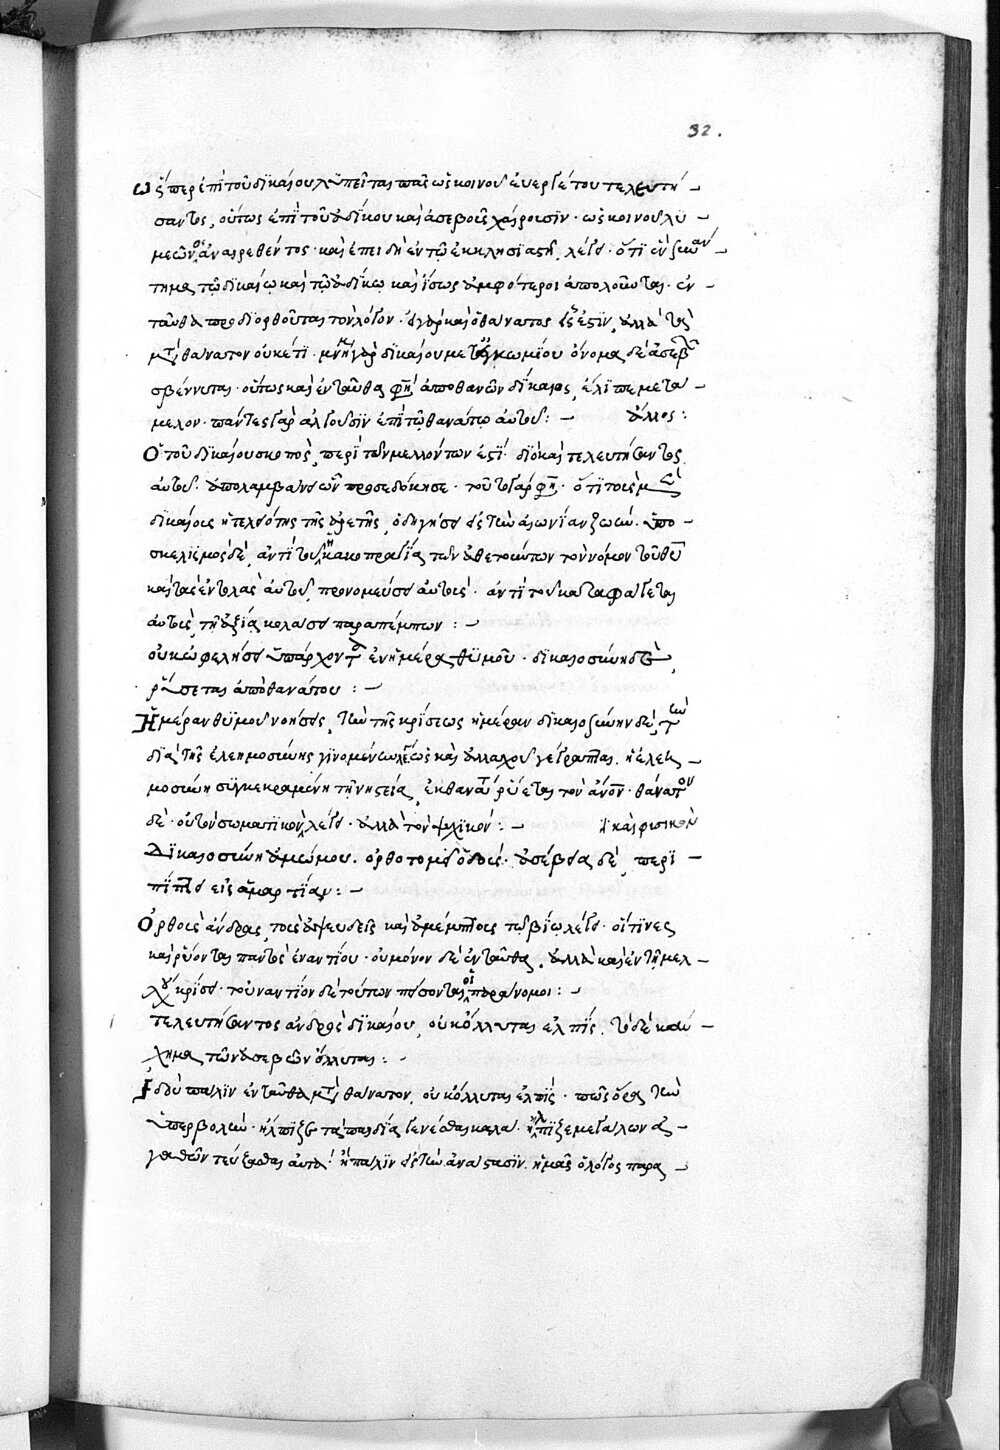 32.
ὥσπερ ἐπὶ τοῦ δικαίου λυπεῖται πᾶς ὡς κοινοῦ εὐεργέτου τελευτή
σαντος, οὕτως ἐπὶ τοῦ ἀδίκου καὶ ἀσεβοῦς χαίρουσιν· ὡς κοινοῦ λυ
μεῶνος ἀναιρεθέντος· καὶ ἐπειδὴ ἐν τῷ ἐκκλησιαστῇ λέγει· ὅτι ἓν συναν
τημα τῷ δικαίῳ καὶ τῷ ἀδίκῳ καὶ ἴσως ἀμφότεροι ἀπολοῦνται· ἐν
ταῦθα προδιορθοῦται τὸν λόγον· εἰ γὰρ καὶ ὁ θάνατος εἷς ἐστιν, ἀλλὰ τὰ
μετὰ θάνατον οὐκέτι· μνήμη γὰρ δικαίου μετ' ἐγκωμίου ὄνομα δὲ ἀσεβοῦς
σβέννυται· οὕτως καὶ ἐνταῦθα φησὶ ἀποθανὼν δίκαιος, ἔλιπε μετά
μελον· πάντες γὰρ ἀλγοῦσιν ἐπὶ τῷ θανάτῳ αὐτοῦ:– ἄλλος:
Ὁ τοῦ δικαίου σκοπὸς, περὶ τῶν μελλόντων ἐστί· διὸ καὶ τελευτήσαντος
αὐτοῦ ἀπολαμβάνει ὧν προσεδόκησε· τοῦτο γάρ φησι· ὅτι τοῖς μὲν
δικαίοις ἡ τελειότης τῆς ἀρετῆς, ὁδηγήσει εἰς τὴν αἰωνίαν ζωήν· ὑπο
σκελισμὸς δὲ, ἀντὶ τοῦ ἡ κακοπραγία τῶν ἀθετούντων τὸν νόμον τοῦ θεοῦ
καὶ τὰς ἐντολὰς αὐτοῦ, προνομεύσει αὐτούς· ἀντὶ τοῦ καταφάγεται
αὐτοὺς τῇ ἀξίᾳ κολάσει παραπέμπων:–
οὐκ ὠφελήσει ὑπάρχοντα ἐν ἡμέρᾳ θυμοῦ· δικαιοσύνη δὲ
ῥύσεται ἀπὸ θανάτου:–
Ἡμέραν θυμοῦ νοήσεις, τὴν τῆς κρίσεως ἡμέραν δικαιοσύνην δὲ, τὴν
διὰ τῆς ἐλεημοσύνης γινομένην λέγει ὡς καὶ ἀλλαχοῦ γέγραπται. ἡ ἐλεη
μοσύνη συγκεκραμένη τῇ νηστείᾳ, ἐκ θανάτου ῥύεται τὸν ἄνον· θάνατον
δὲ· οὐ τὸν σωματικὸν λέγει· ἀλλὰ τὸν ψυχικόν:– καὶ φυσικὸν
Δικαιοσύνη ἀμώμου. ὀρθοτομεῖ ὁδούς· ἀσέβεια δὲ, περι
πίπτει εἰς ἁμαρτίαν:–
Ὀρθοὺς ἄνδρας, τοὺς ἀψευδεῖς καὶ ἀμέμπτους τῷ βίῳ λέγει· οἵτινες
καὶ ῥύονται παντὸς ἐναντίου· οὐ μόνον δὲ ἐνταῦθα. ἀλλὰ καὶ ἐν τῇ μελ
λούσῃ κρίσει· τοὐναντίον δὲ τούτων πείσονται οἱ παράνομοι:–
τελευτήσαντος ἀνδρὸς δικαίου, οὐκ ὄλλυται ἐλπίς. τὸ δὲ καύ
χημα τῶν ἀσεβῶν ὄλλυται:–
Ἰδοὺ πάλιν ἐνταῦθα μετὰ θάνατον οὐκ ὄλλυται ἐλπίς· πῶς ὅρα τὴν
ὑπερβολὴν· ἤλπιζε τὰ παιδία γενέσθαι καλά· ἤλπιζε μεγάλων ἀ
γαθῶν τεύξασθαι αὐτά. ἢ πάλιν εἰς τὴν ἀνάστασιν. ἡμᾶς ὁ λόγος παρα